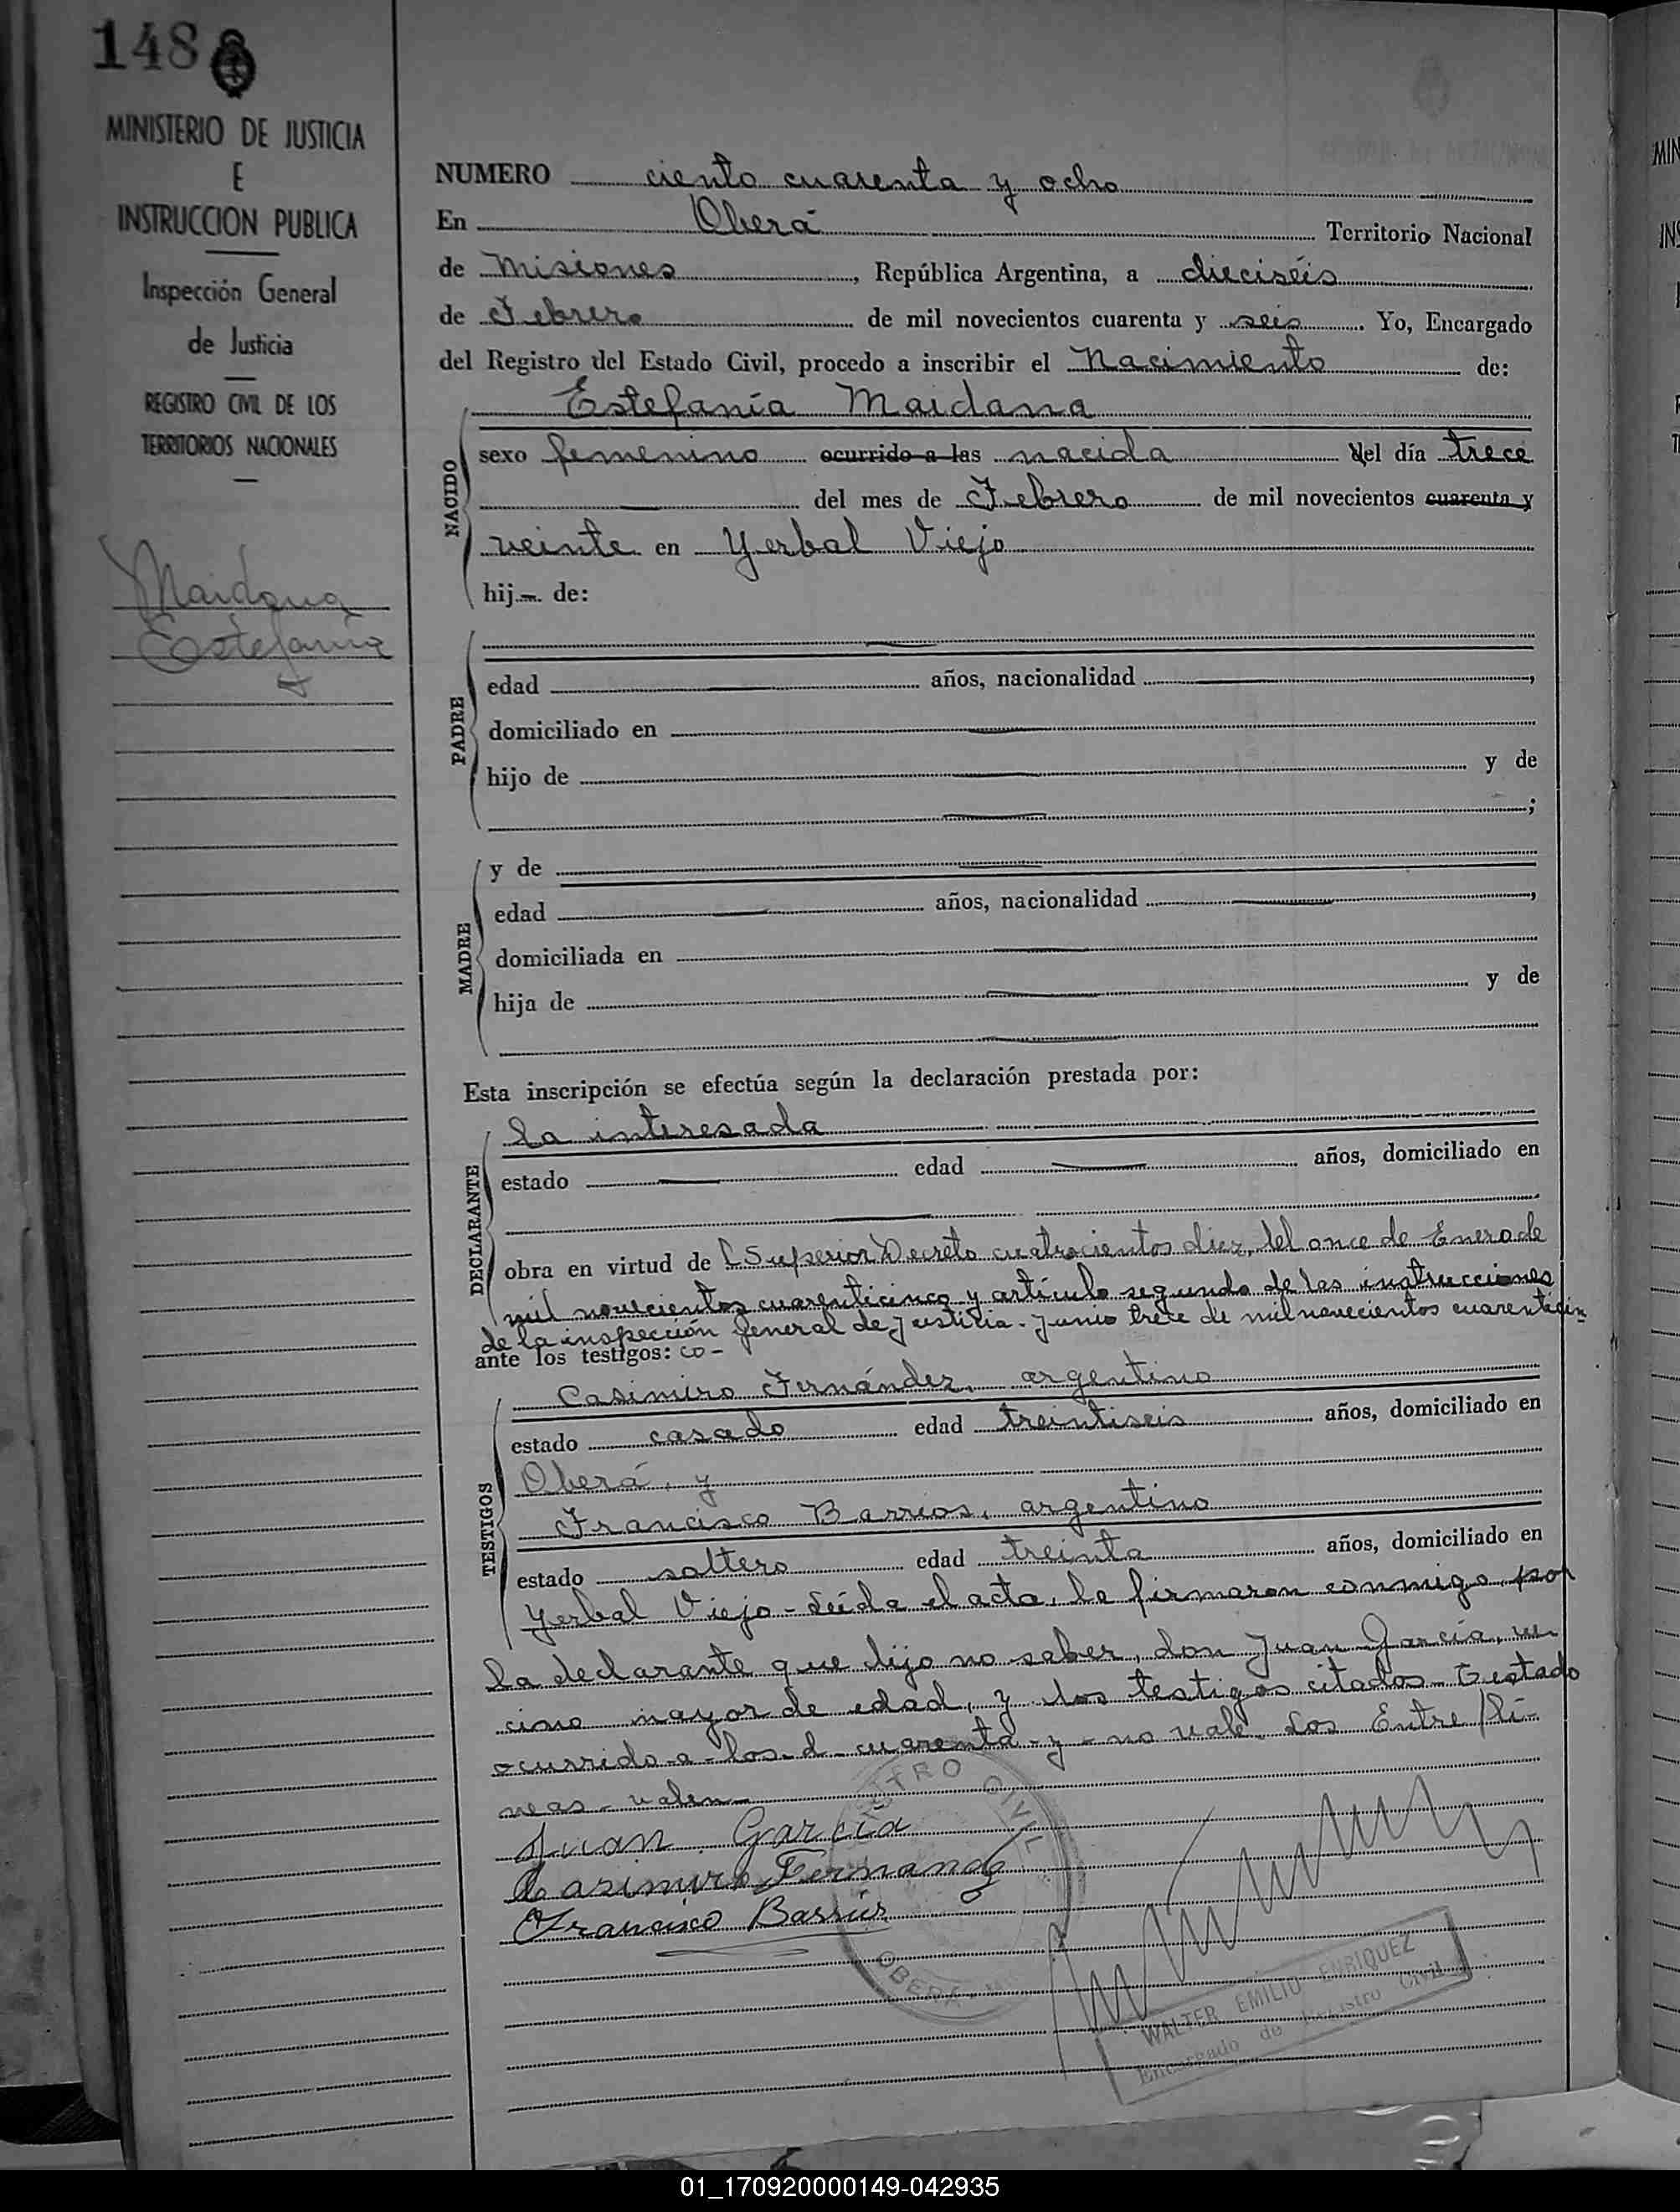 148
MINISTERIO DE JUSTICIA
E
INSTRUCCION PUBLICA
Inspección General
de Justicia
REGISTRO CIVIL DE LOS
TERRITORIOS NACIONALES
Maidana
Estefanía
NUMERO ciento cuarenta y ocho
En Oberá Territorio Nacional
de Misiones, República Argentina, a dieciséis
de Febrero de mil novecientos cuarenta y seis. Yo, Encargado
del Registro del Estado Civil, procedo a inscribir el Nacimiento de:
NACIDO
Estefanía Maidana
sexo femenino ocurrido a las nacida del día trece
del mes de Febrero de mil novecientos cuarenta y
veinte en Yerbal Viejo
hij de:
PADRE
edad años, nacionalidad ,
domiciliado en
hijo de y de
;
MADRE
y de
edad años, nacionalidad ,
domiciliada en
hija de y de
Esta inscripción se efectúa según la declaración prestada por:
DECLARANTE
la interesada
estado edad años, domiciliado en
obra en virtud de (Superior) Decreto cuatrocientos diez, del once de Enero de
mil novecientos cuarenticinco y artículo segundo de las instrucciones
de la inspección General de Justicia - Junio trece de mil novecientos cuarenticin
ante los testigos: co-
TESTIGOS
Casimiro Fernández, argentino
estado casado edad treintiseis años, domiciliado en
Oberá, y
Francisco Barrios, argentino
estado soltero edad treinta años, domiciliado en
Yerbal Viejo - Leída el acta, la firmaron conmigo, por
la declarante que dijo no saber, don Juan García, ve-
cino mayor de edad, y los testigos citados - Testado
ocurrido - a - los - d - cuarenta - y - no vale. Los Entre/li-
neas - valen -
Juan García
Casimiro Fernandz
Francisco Barrios
REGISTRO CIVIL
OBERÁ
WALTER EMILIO ENRIQUEZ
Encargado de Registro Civil
01_170920000149-042935